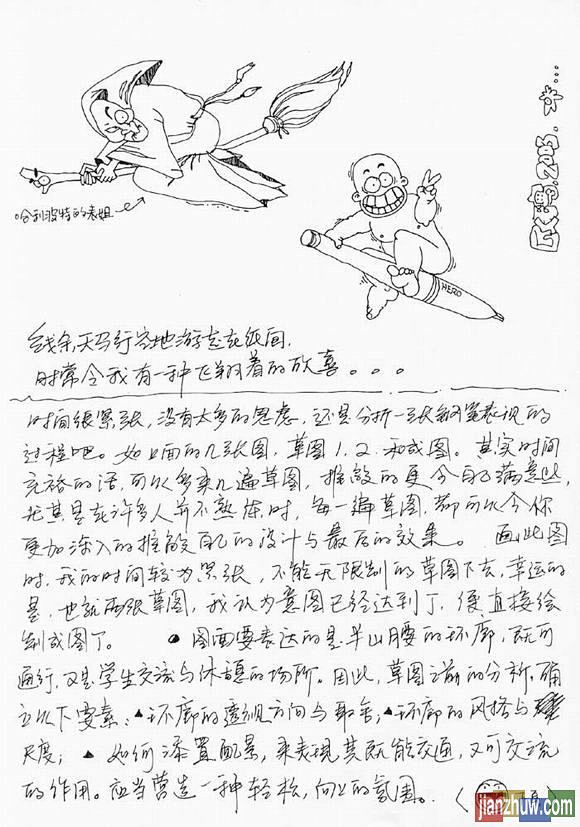 哈利波特的表姐
2003.
HERO
线条,天马行空地游走在纸间,
时常令我有一种飞翔着的欣喜。。。
时间很紧张,没有太多的思虑,还是分析一张钢笔表现的
过程吧。如上面的几张图,草图1、2、和成图。其实时间
充裕的话,可以多来几遍草图,推敲的更令自己满意些,
尤其是在许多人并不熟练时,每一遍草图,都可以令你
更加深入的推敲自己的设计与最后的效果。 画此图
时,我的时间较为紧张,不能无限制的草图下去,幸运的
是,也就两张草图,我认为意图已经达到了,便直接绘
制成图了。 ●图面要表达的是半山腰的环廊,既可
通行,又是学生交流与休憩的场所。因此,草图之前的分析,确
立以下要素:▲环廊的透视方向与取舍;▲环廊的风格与
尺度;▲如何添置配景,来表现其既能交通,又可交流
的作用。应当营造一种轻松,向上的氛围。
jianzhuw.com